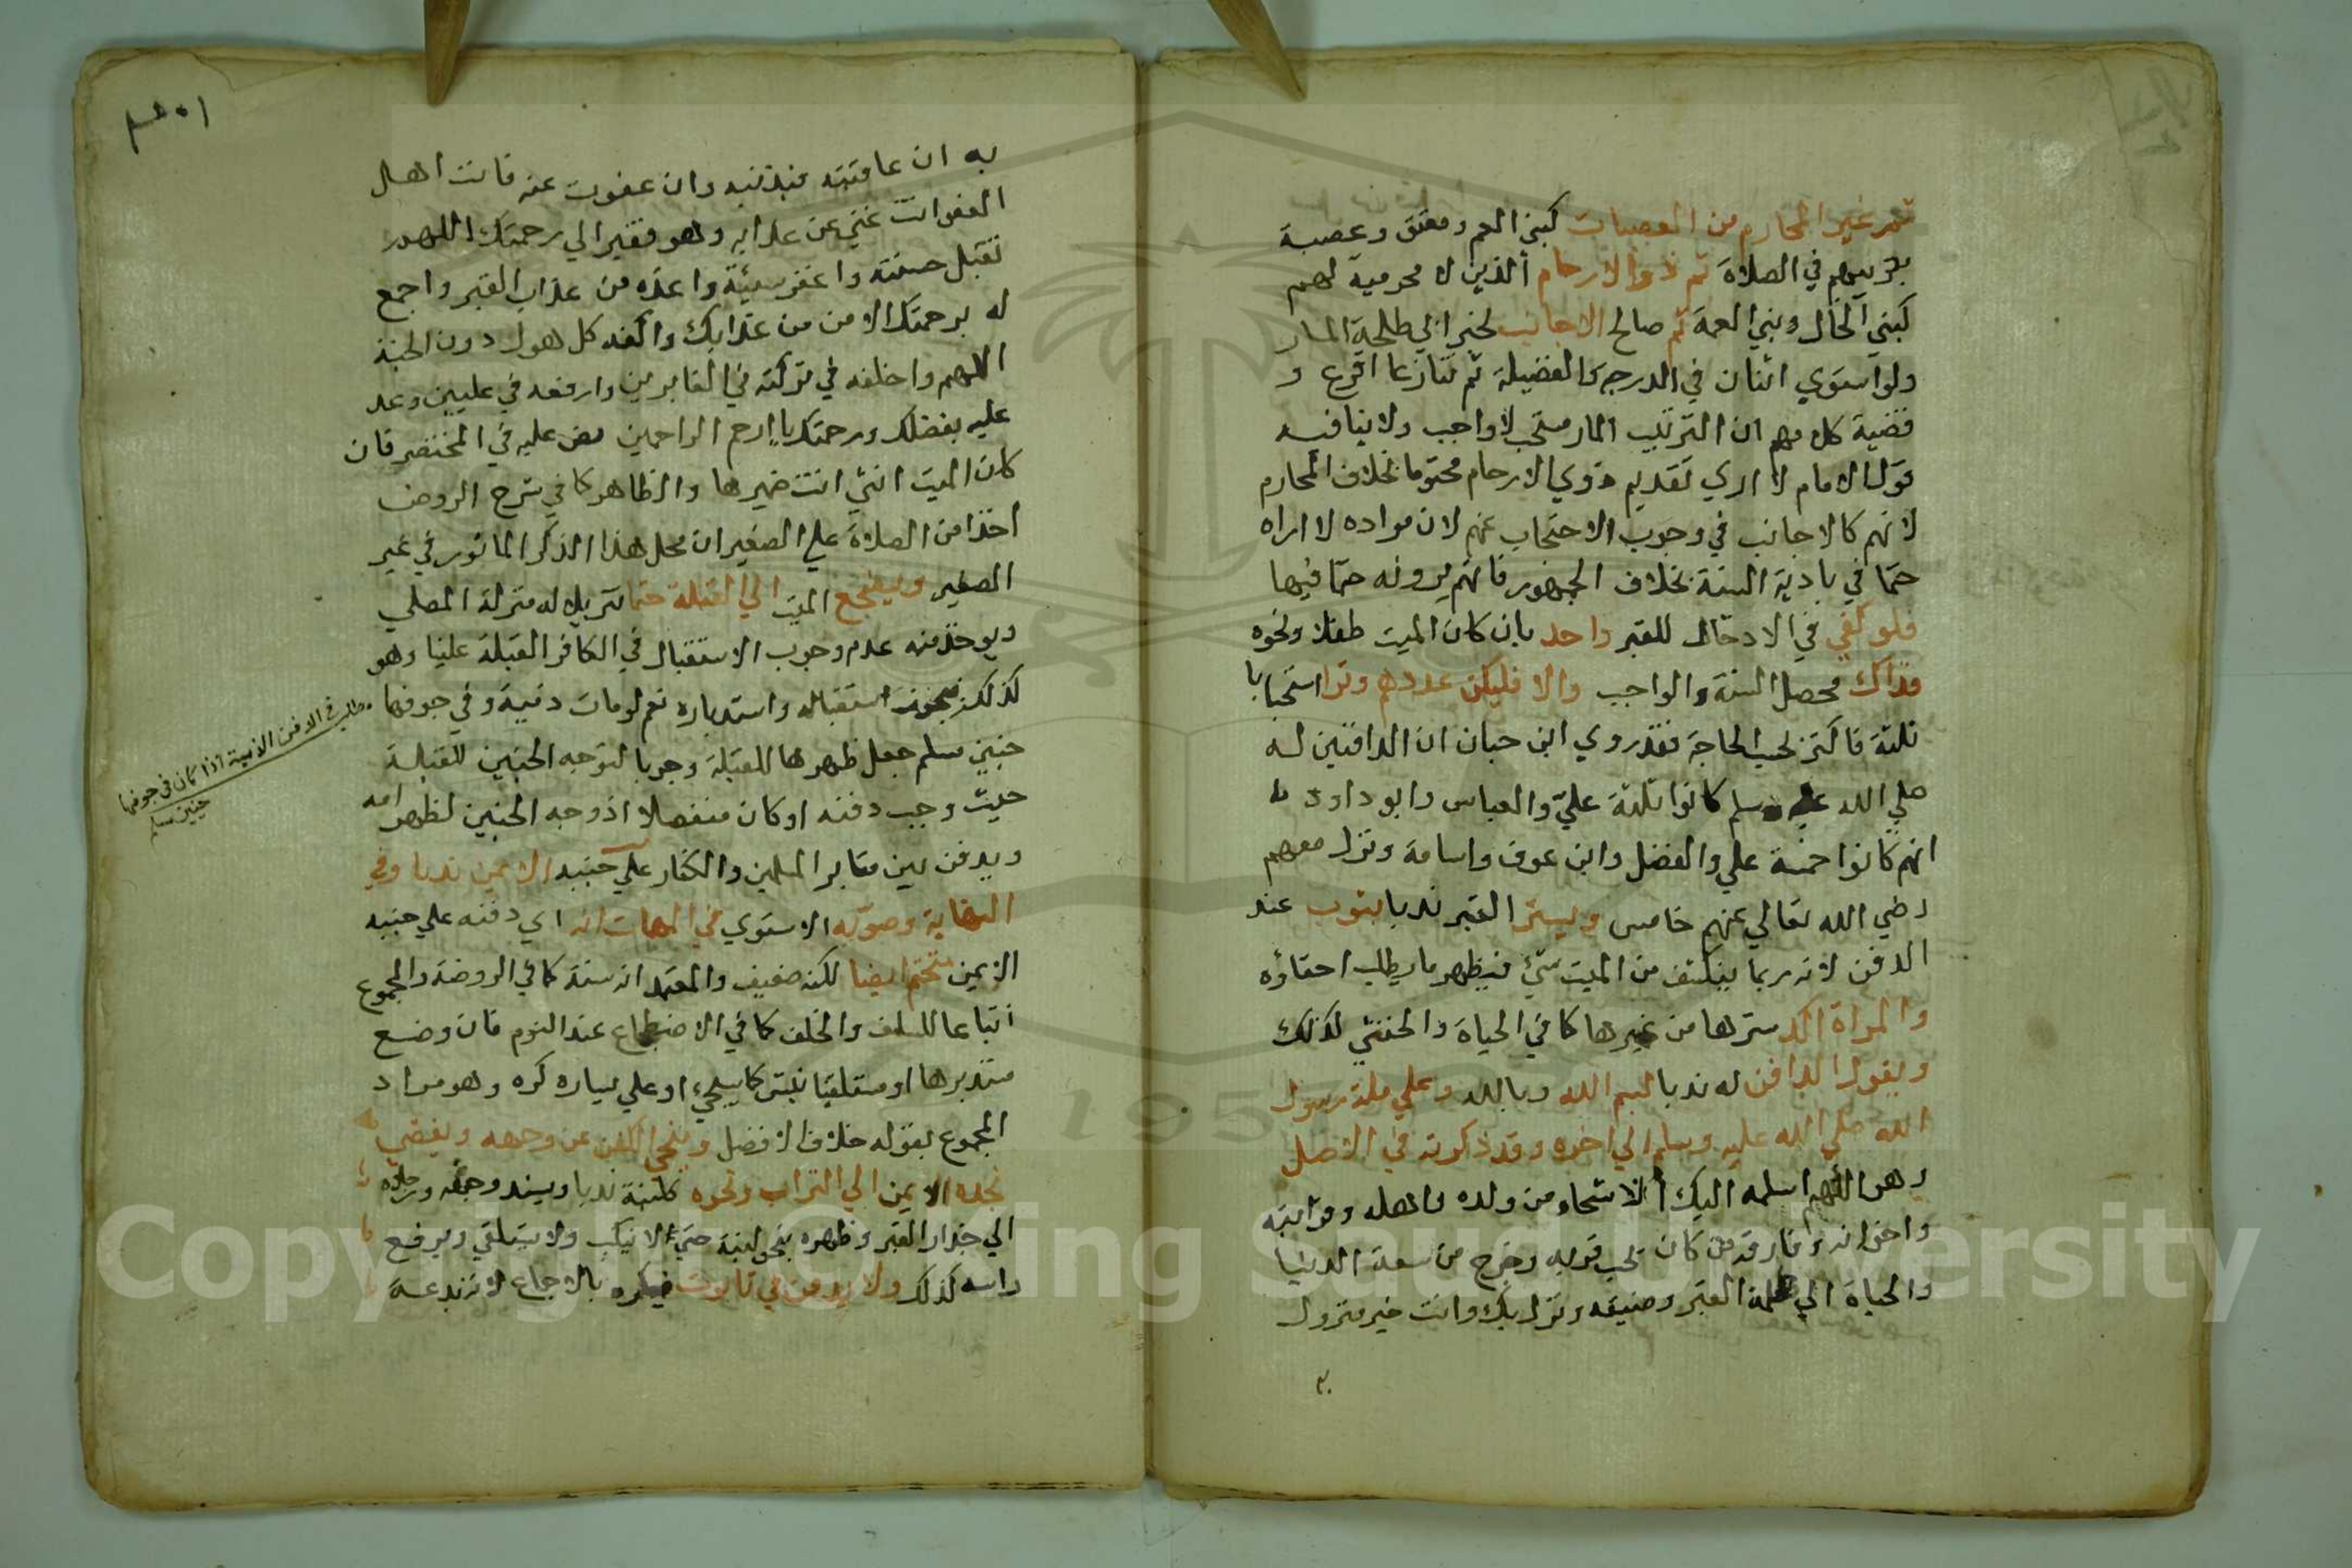 ثم غير المحارم من العصبات كبني العم ومعتق وعصبة
بترتيبهم في الصلاة ثم ذوالارحام الذين لا محرمية لهم
كبني الخال وبني العمة ثم صالح الاجانب لخبر ابي طلحة المار
ولو استوي اثنان في الدرجة والفضيلة ثم تنازعا اقرع و
قضية كلامهم ان الترتيب المار مستحب لا واجب ولا ينافيه
قول الامام لا اري تقديم ذوي الارحام محتوما بخلاف المحارم
لانهم كالاجانب في وجوب الاحتجاب عنهم لان مراده لا اراه
حتما في بادية السنة بخلاف الجمهور فانهم يرونه حتما فيها
فلو كفي في الادخال للقبر واحد بان كان الميت طفلا ونحوه
فذاك محصل السنة والواجب والا فليكن عددهم وترا استحبابا
ثلثة فاكثر بحسب الحاجة فقد روي ابن حبان ان الدافنين له
صلي الله عليه وسلم كانوا ثلثة علي والعباس وابو داود
انهم كانوا خمسة علي والفضل وابن عوف واسامة ونزل معهم
رضي الله تعالي عنهم خامس ويستر القبر ندبا بثوب عند
الدفن لانه ربما ينكشف من الميت شيء فيظهر ما يطلب اخفاؤه
والمراة اكد سترها من غيرها كما في الحياة والخنثي كذلك
ويقول الدافن له ندبا بسم الله وبالله وعلي ملة رسول
الله صلي الله عليه وسلم الي اخره وقد ذكرته في الاصل
وهو اللهم اسلمه اليك الاشحاء من ولده واهله وقرابته
واخوانه وفارقه من كان يحب قربه وخرج من سعة الدنيا
والحياة الي ظلمة القبر وضيقه ونزل بك وانت خير منزول
به
به ان عاقبته فبذنبه وان عفوت عنه فانت اهل
العفو انت غني عن عذابه وهو فقير الي رحمتك اللهم
تقبل حسنته واغفر سيئة واعذه من عذاب القبر واجمع
له برحمتك الامن من عذابك واكفه كل هول دون الجنة
اللهم واخلفه في تركته في الغابرين وارفعه في عليين وعد
عليه بفضلك ورحمتك يا ارحم الراحمين نص عليه في المختصر فان
كان الميت انثي انث ضميرها والظاهر كما في شرح الروض
اخذا من الصلاة علي الصغير ان محل هذا الذكر الماثور في غير
الصغير ويضجع الميت الي القبلة حتما تنزيلا له منزلة المصلي
ويوخذ منه عدم وجوب الاستقبال في الكافر القبلة علينا وهو
كذلك فيجوز استقباله واستدباره نعم لو ماتت ذمية وفي جوفها
جنين مسلم جعل ظهرها للقبلة وجوبا لتوجه الجنين للقبلة
حيث وجب دفنه لو كان منفصلا اذ وجه الجنين لظهر امه
ويدفن بين مقابر المسلمين والكفار علي جنبه الايمن ندبا وفي
النهاية وصوبه الاسنوي في المهمات انه اي دفنه علي جنبه
الايمن متحتم ايضا لكنه ضعيف والمعتمد انه سنة كما في الروضة والمجموع
اتباعا للسلف والخلف كما في الاضطجاع عند النوم فان وضع
مستدبرها او مستلقيا نبش كما سيجيء او علي يساره كره وهو مراد
المجموع بقوله خلاف الافضل وينحي الكفن عن وجهه ويفضي
بخده الايمن الي التراب ونحوه كلبنة ندبا ويسند وجهه ورجلاه
الي جدار القبر وظهره بنحو لبنة حتي لا ينكب ولا يستلقي ويرفع
راسه كذلك ولا يدفن في تابوت فيكره بالاجماع لانه بدعة
مطلب في الدفن الذمية اذا كان في جوفها
جنين مسلم